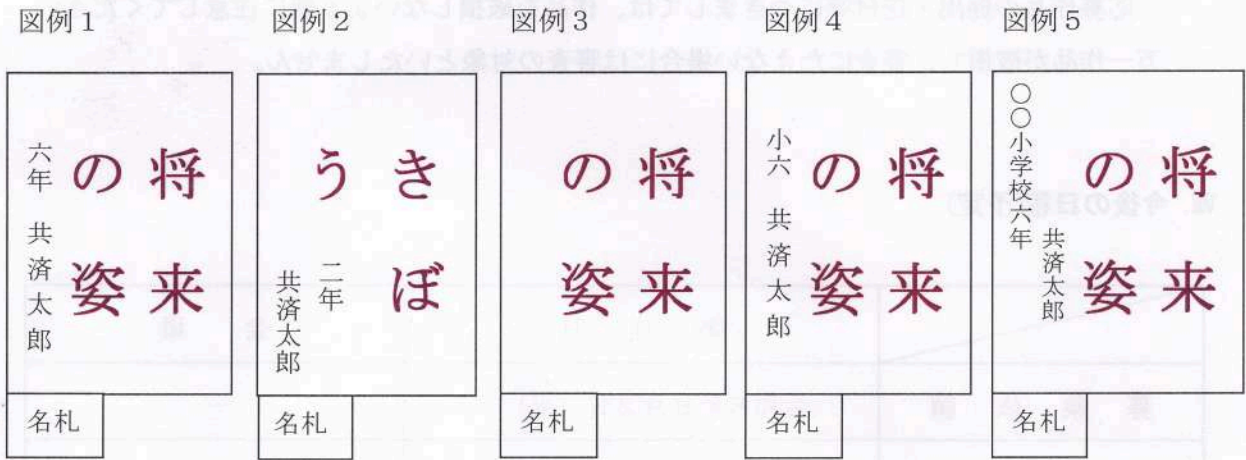 図例１
将来
の姿
六年　共済太郎
名札
図例２
きぼ
う
二年
共済太郎
名札
図例３
将来
の姿
名札
図例４
将来
の姿
小六　共済太郎
名札
図例５
将来
の姿
〇〇小学校六年
共済太郎
名札